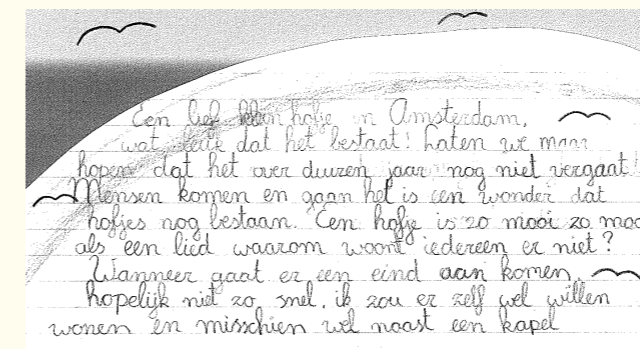 Een lief klein hofje in Amsterdam,
wat leuk dat het bestaat! Laten we maar
hopen dat het over duizen jaar nog niet vergaat!
Mensen komen en gaan het is een wonder dat
hofjes nog bestaan. Een hofje is zo mooi zo mooi
als een lied waarom woont iedereen er niet?
Wanneer gaat er een eind aan komen,
hopelijk niet zo snel, ik zou er zelf wel willen
wonen en misschien wel naast een kapel